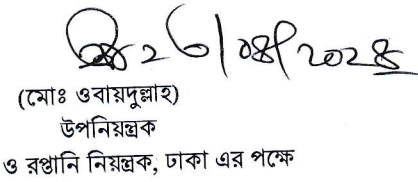 ২৬/০৪/২০২৪
(মোঃ ওবায়দুল্লাহ)
উপনিয়ন্ত্রক
ও রপ্তানি নিয়ন্ত্রক, ঢাকা এর পক্ষে